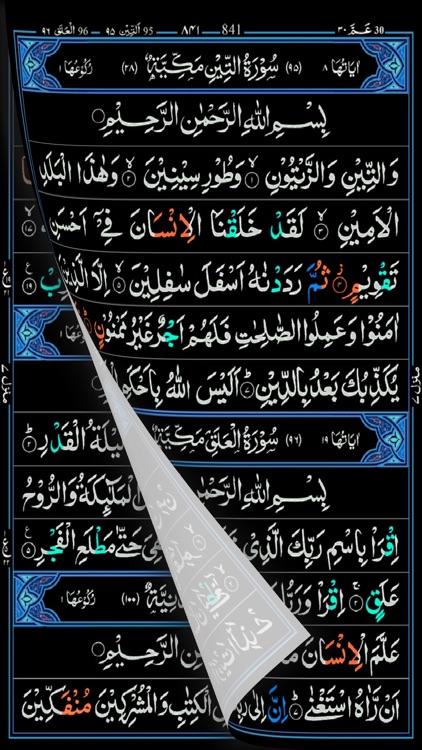 ٩٦ الْعَلَق 96 – ٩٥ اَلتِّيْن 95 ٨٤١ 841 ٣٠ عَمَّ 30
اٰيَاتُهَا ٨ (٩٥) سُوْرَةُ التِّيْنِ مَكِّيَّةٌ (٢٨) رُكُوْعُهَا ١
بِسْمِ اللهِ الرَّحْمٰنِ الرَّحِيْمِ
وَالتِّيْنِ وَالزَّيْتُوْنِ ١ وَطُوْرِ سِيْنِيْنَ ٢ وَهٰذَا الْبَلَدِ
الْاَمِيْنِ ٣ لَقَدْ خَلَقْنَا الْاِنْسَانَ فِيْٓ اَحْسَنِ
تَقْوِيْمٍ ٤ ثُمَّ رَدَدْنٰهُ اَسْفَلَ سٰفِلِيْنَ ٥ اِلَّا الَّذِيْنَ
اٰمَنُوْا وَعَمِلُوا الصّٰلِحٰتِ فَلَهُمْ اَجْرٌ غَيْرُ مَمْنُوْنٍ
يُكَذِّبُكَ بَعْدُ بِالدِّيْنِ ٧ اَلَيْسَ اللهُ بِاَحْكَمِ
اٰيَاتُهَا ١٩ (٩٦) سُوْرَةُ الْعَلَقِ مَكِّيَّةٌ لَيْلَةُ الْقَدْرِ ٢
بِسْمِ اللهِ الرَّحْمٰنِ الْمَلٰٓئِكَةُ وَالرُّوْحُ
اِقْرَاْ بِاسْمِ رَبِّكَ الَّذِيْ هِيَ حَتّٰى مَطْلَعِ الْفَجْرِ ٥
عَلَقٍ ٢ اِقْرَاْ وَرَبُّكَ (١٠٠) رُكُوْعُهَا ١
عَلَّمَ الْاِنْسَانَ الرَّحْمٰنِ الرَّحِيْمِ
اَنْ رَّاٰهُ اسْتَغْنٰى ٧ اِنَّ اِلٰى الْكِتٰبِ وَالْمُشْرِكِيْنَ مُنْفَكِّيْنَ